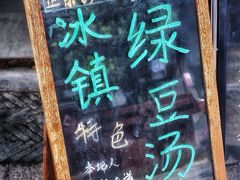 正宗
冰镇
绿豆汤
特色
本地人